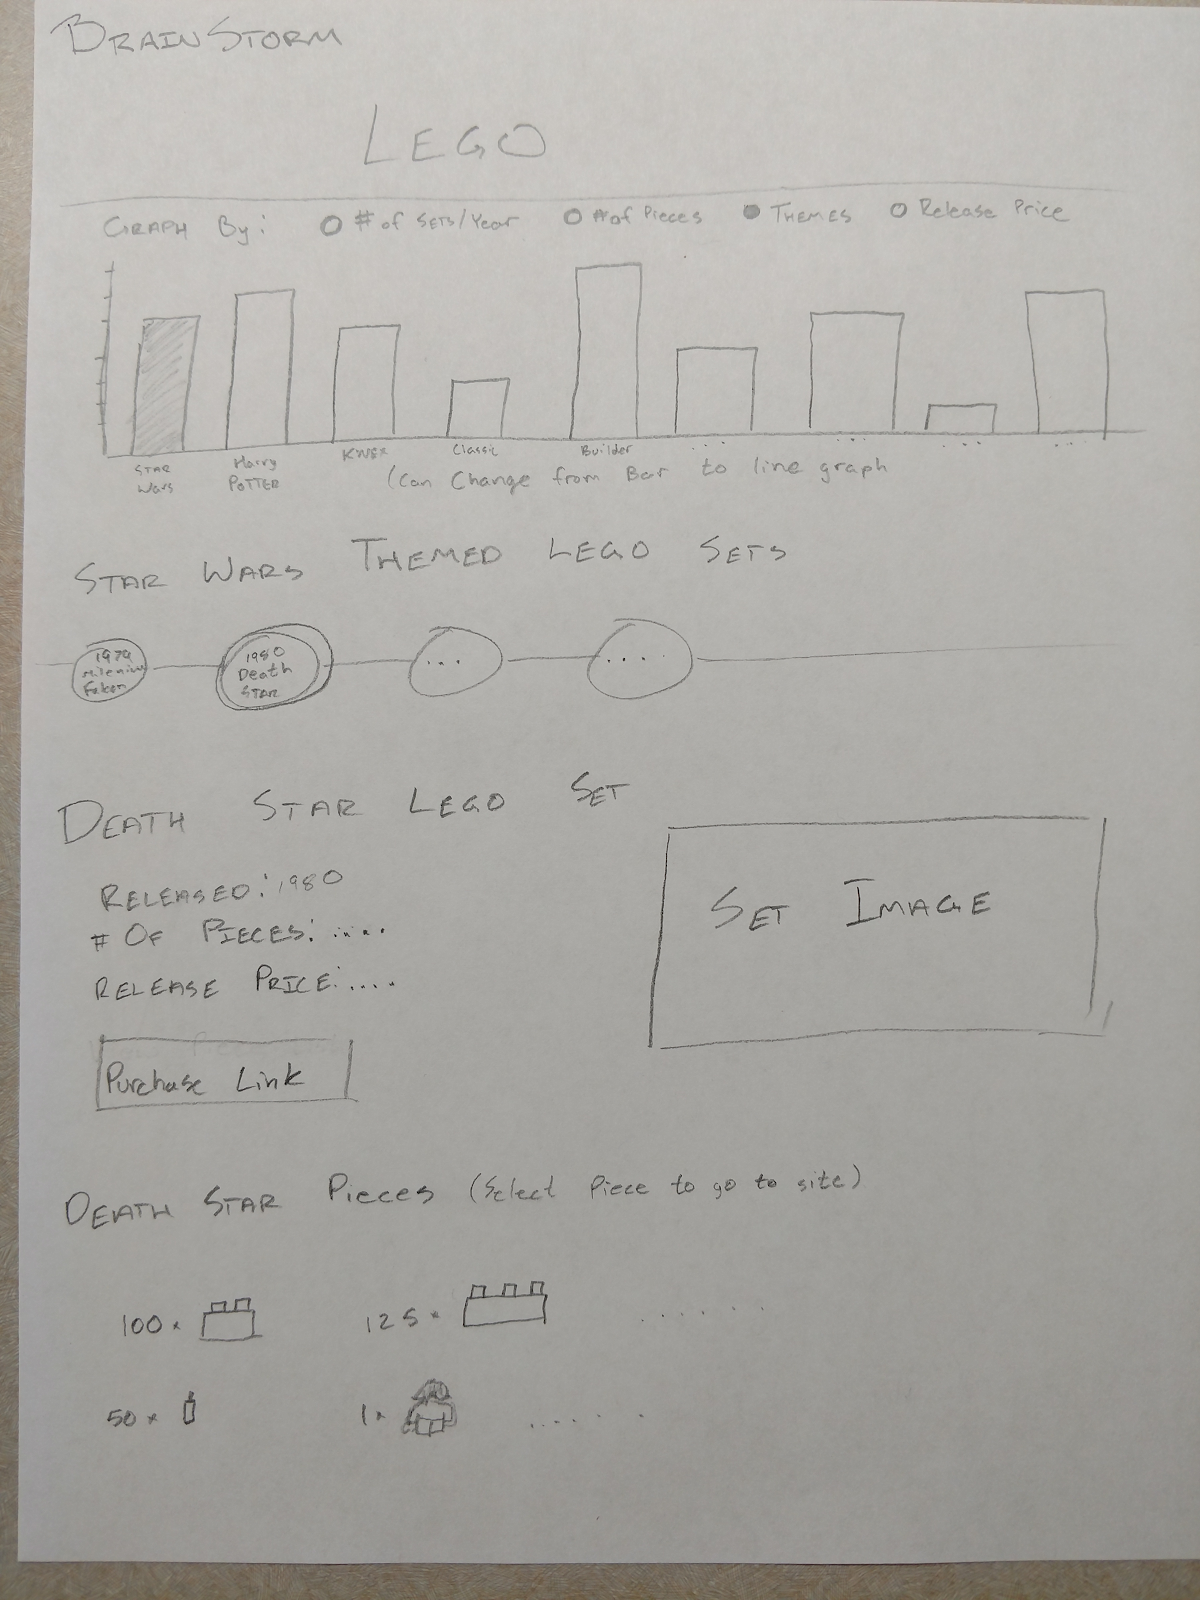 BRAINSTORM
LEGO
GRAPH By: # of SETS/Year # of Pieces THEMES Release Price
STAR Wars Harry POTTER Classic Builder ... ... ... ...
(Can Change from Bar to line graph
STAR WARS THEMED LEGO SETS
1980 Death STAR ... ....
DEATH STAR LEGO SET
RELEASED: 1980
# OF PIECES: .....
RELEASE PRICE: ....
SET IMAGE
Purchase Link
DEATH STAR Pieces (Select Piece to go to site)
100 x 125 x ......
50 x 1x ......